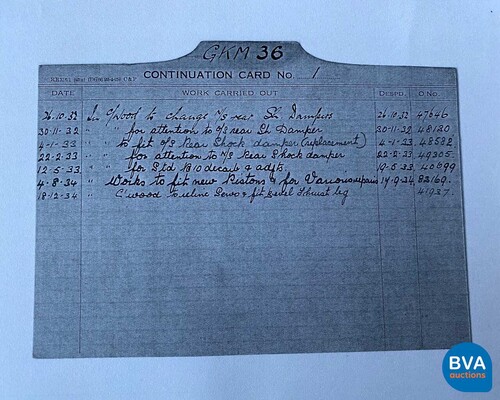 GKM 36
CONTINUATION CARD No. 1
DATE WORK CARRIED OUT DESPD. O.No.
26.10.32 In C/wood to change N/S rear Sh Dampers 26.10.32 47646
30-11-32 " " for attention to O/S rear Sh Damper 30-11-32 48120
4-1-33 " to fit O/S Rear Shock damper (replacement) 4-1-33 48582
22-2-33 " " for attention to N/S Rear Shock damper 22-2-33 49305
12-5-33 " " for Std decarb & adjts
4-8-34 " Works to fit new Pistons & for Various repairs 17-9-34
18-12-34 C wood to reline Servo & fit bevel thrust bg 41937.
BVA
auctions